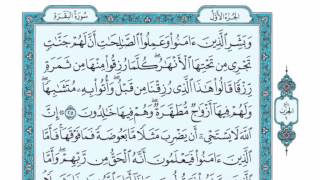 الجزء الأول
سورة البقرة
وَبَشِّرِ الَّذِينَ ءَامَنُوا وَعَمِلُوا الصَّٰلِحَٰتِ أَنَّ لَهُمْ جَنَّٰتٍ
تَجْرِي مِن تَحْتِهَا الْأَنْهَٰرُ كُلَّمَا رُزِقُوا مِنْهَا مِن ثَمَرَةٍ
رِّزْقًا قَالُوا هَٰذَا الَّذِي رُزِقْنَا مِن قَبْلُ وَأُتُوا بِهِ مُتَشَٰبِهًا
وَلَهُمْ فِيهَا أَزْوَٰجٌ مُّطَهَّرَةٌ وَهُمْ فِيهَا خَٰلِدُونَ ٢٥ إِنَّ
اللَّهَ لَا يَسْتَحْيِ أَن يَضْرِبَ مَثَلًا مَّا بَعُوضَةً فَمَا فَوْقَهَا فَأَمَّا
الَّذِينَ ءَامَنُوا فَيَعْلَمُونَ أَنَّهُ الْحَقُّ مِن رَّبِّهِمْ وَأَمَّا